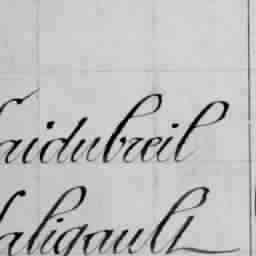 aidubreil
aligault